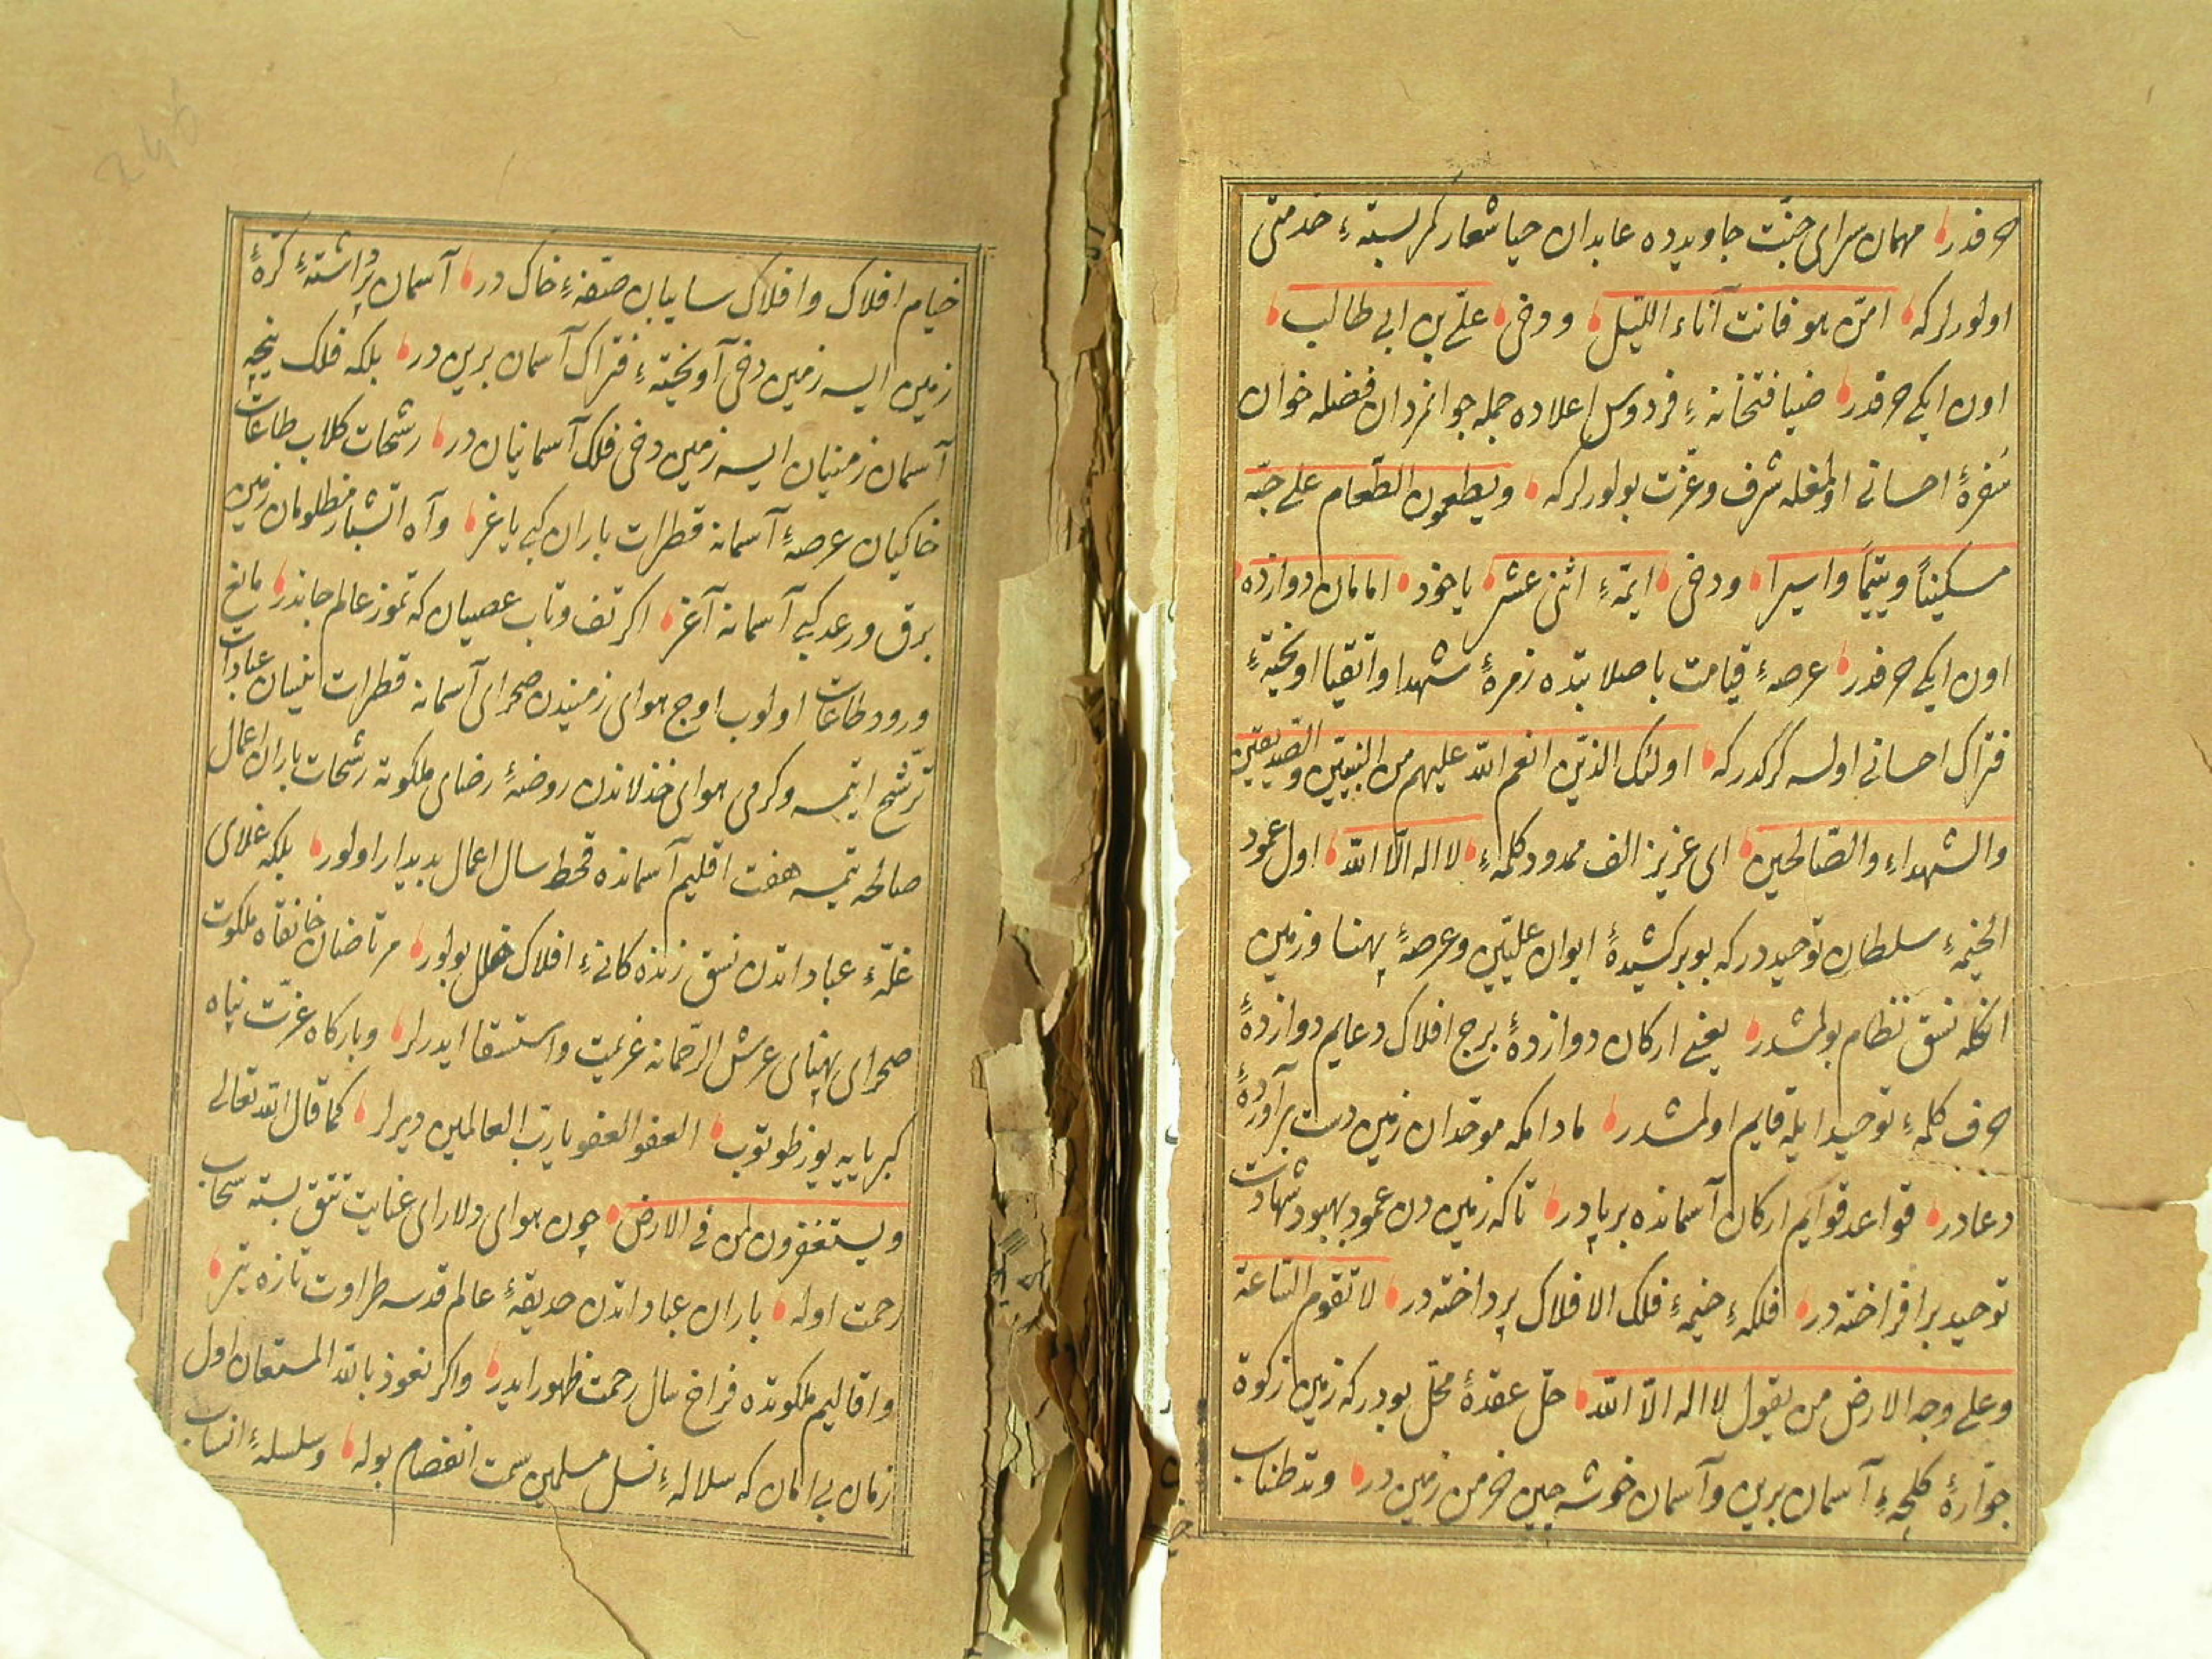 حرفدر مهمان سرای جنّت جاویدده عابدان حیا شعار کمر بستهٔ خدمتی
اولورلرکه امّن هو قانت آناء اللّیل ودخی علّی بن ابی طالب
اون ایکی حرفدر ضیافتخانهٔ فردوس اعلاده جمله جوانمردان فضله خوان
سُفرهٔ احسانی اولمغله شرف وعزّت بولورلرکه ویطعمون الطّعام علی حبّه
مسکیناً ویتیماً واسیرا ودخی ایمّهٔ اثنی عشر یاخود امامان دوازده
اون ایکی حرفدر عرصهٔ قیامت باصلابتده زمرهٔ شهدا واتقیا اویختهٔ
فتراک احسانی اولسه کرکدرکه اولئک الذین انعم الله علیهم من النبیّین والصدیقین
والشهداء والصّالحین ای عزیز الف ممدود کلمهٔ لا اله الّا الله اول عمود
الخیمهٔ سلطان توحیددرکه بو برکشیدهٔ ایوان علیّین وعرصهٔ پهنا و زمین
انکله نسق نظام بولمشدر یعنی ارکان دوازدهٔ برج افلاک دعایم دوازدهٔ
حرف کلمهٔ توحید ایله قایم اولمشدر مادامکه موحّدان زمین دست برآوردهٔ
دعادر قواعد قوایم ارکان آسمانده برپادر تاکه زمین دن عمود بهبود شهادت
توحید برافراخته در فلکهٔ خیمهٔ فلک الافلاک پرداخته در لا تقوم السّاعة
وعلی وجه الارض من یقول لا اله الّا الله حلّ عقدهٔ محل بودرکه زمین زکوة
جوارهٔ کلیجهٔ آسمان برین وآسمان خوشه چین خرمن زمین در وتد طناب
خیام افلاک وافلاک سایبان صفهٔ خاک در آسمان برداشتهٔ کرهٔ
زمین ایسه زمین دخی آویختهٔ فتراک آسمان برین در بلکه فلک پنجهٔ
آسمان زمنیان ایسه زمین دخی فلک آسمانیان در رشحات کلاب طاعات
خاکیان عرصهٔ آسمانه قطرات باران کبی یاغر وآه آتشبار مظلومان زمین
برق ورعد کبی آسمانه آغر اکر تف وتاب عصیان که تموز عالم جاندر مانع
ورود طاعات اولوب اوج هوای زمیندن صحرای آسمانه قطرات نیسان عبادات
ترشّح ایتمسه وکرمی هوای خذلاندن روضهٔ رضای ملکوته رشحات باران اعمال
صالحه یتمسه هفت اقلیم آسمانده قحط سال اعمال بدیدار اولور بلکه غلای
غلّهٔ عباداتدن نسق زنده کانیٔ افلاک خلل بولور مرتاضان خانقاه ملکوت
صحرای پهنای عرش الرّحمانه عزیمت واستسقا ایدرلر وبارکاه عزّت پناه
کبریایه یوز طوتوب العفو العفو یا ربّ العالمین دیرلر کما قال الله تعالی
ویستغفرون لمن فی الارض چون هوای دلارای عنایت تتق بسته سحاب
رحمت اوله باران عباداتدن حدیقهٔ عالم قدسه طراوت تازه یتر
واقالیم ملکوتده فراخ سال رحمت ظهور ایدر واکر نعوذ بالله المستعان اول
زمان بی امان که سلالهٔ نسل مسلمین سمت انفصام بوله وسلسلهٔ انساب